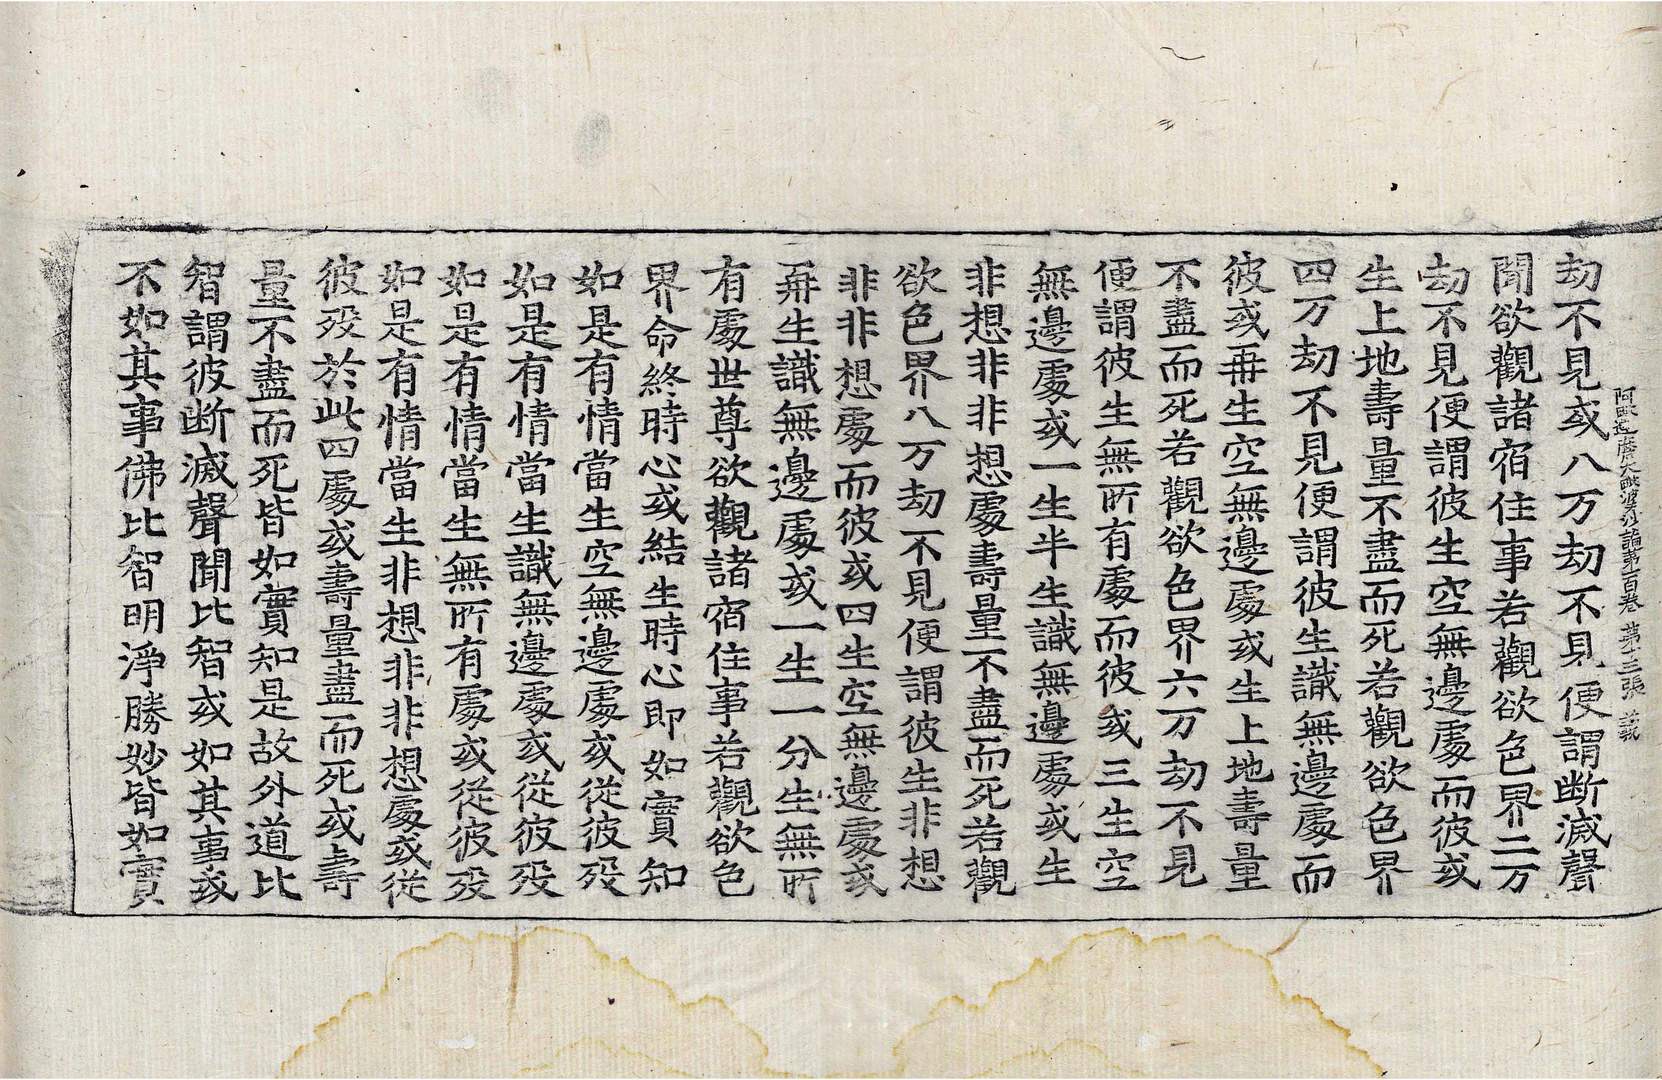 阿毗達磨大毗婆沙論第一百卷 第十三張
劫不見或八万劫不見便謂断滅聲
聞欲觀諸宿住事若觀欲色界二万
劫不見便謂彼生空無邊處而彼或
生上地壽量不盡而死若觀欲色界
四万劫不見便謂彼生識無邊處而
彼或再生空無邊處或生上地壽量
不盡而死若觀欲色界六万劫不見
便謂彼生無所有處而彼或三生空
無邊處或一生半生識無邊處或生
非想非非想處壽量不盡而死若觀
欲色界八万劫不見便謂彼生非想
非非想處而彼或四生空無邊處或
再生識無邊處或一生一分生無所
有處世尊欲觀諸宿住事若觀欲色
界命終時心或結生時心即如實知
如是有情當生空無邊處或從彼歿
如是有情當生識無邊處或從彼歿
如是有情當生無所有處或從彼歿
如是有情當生非想非非想處或從
彼歿於此四處或壽量盡而死或壽
量不盡而死皆如實知是故外道比
智謂彼断滅聲聞比智或如其事或
不如其事佛比智明淨勝妙皆如實